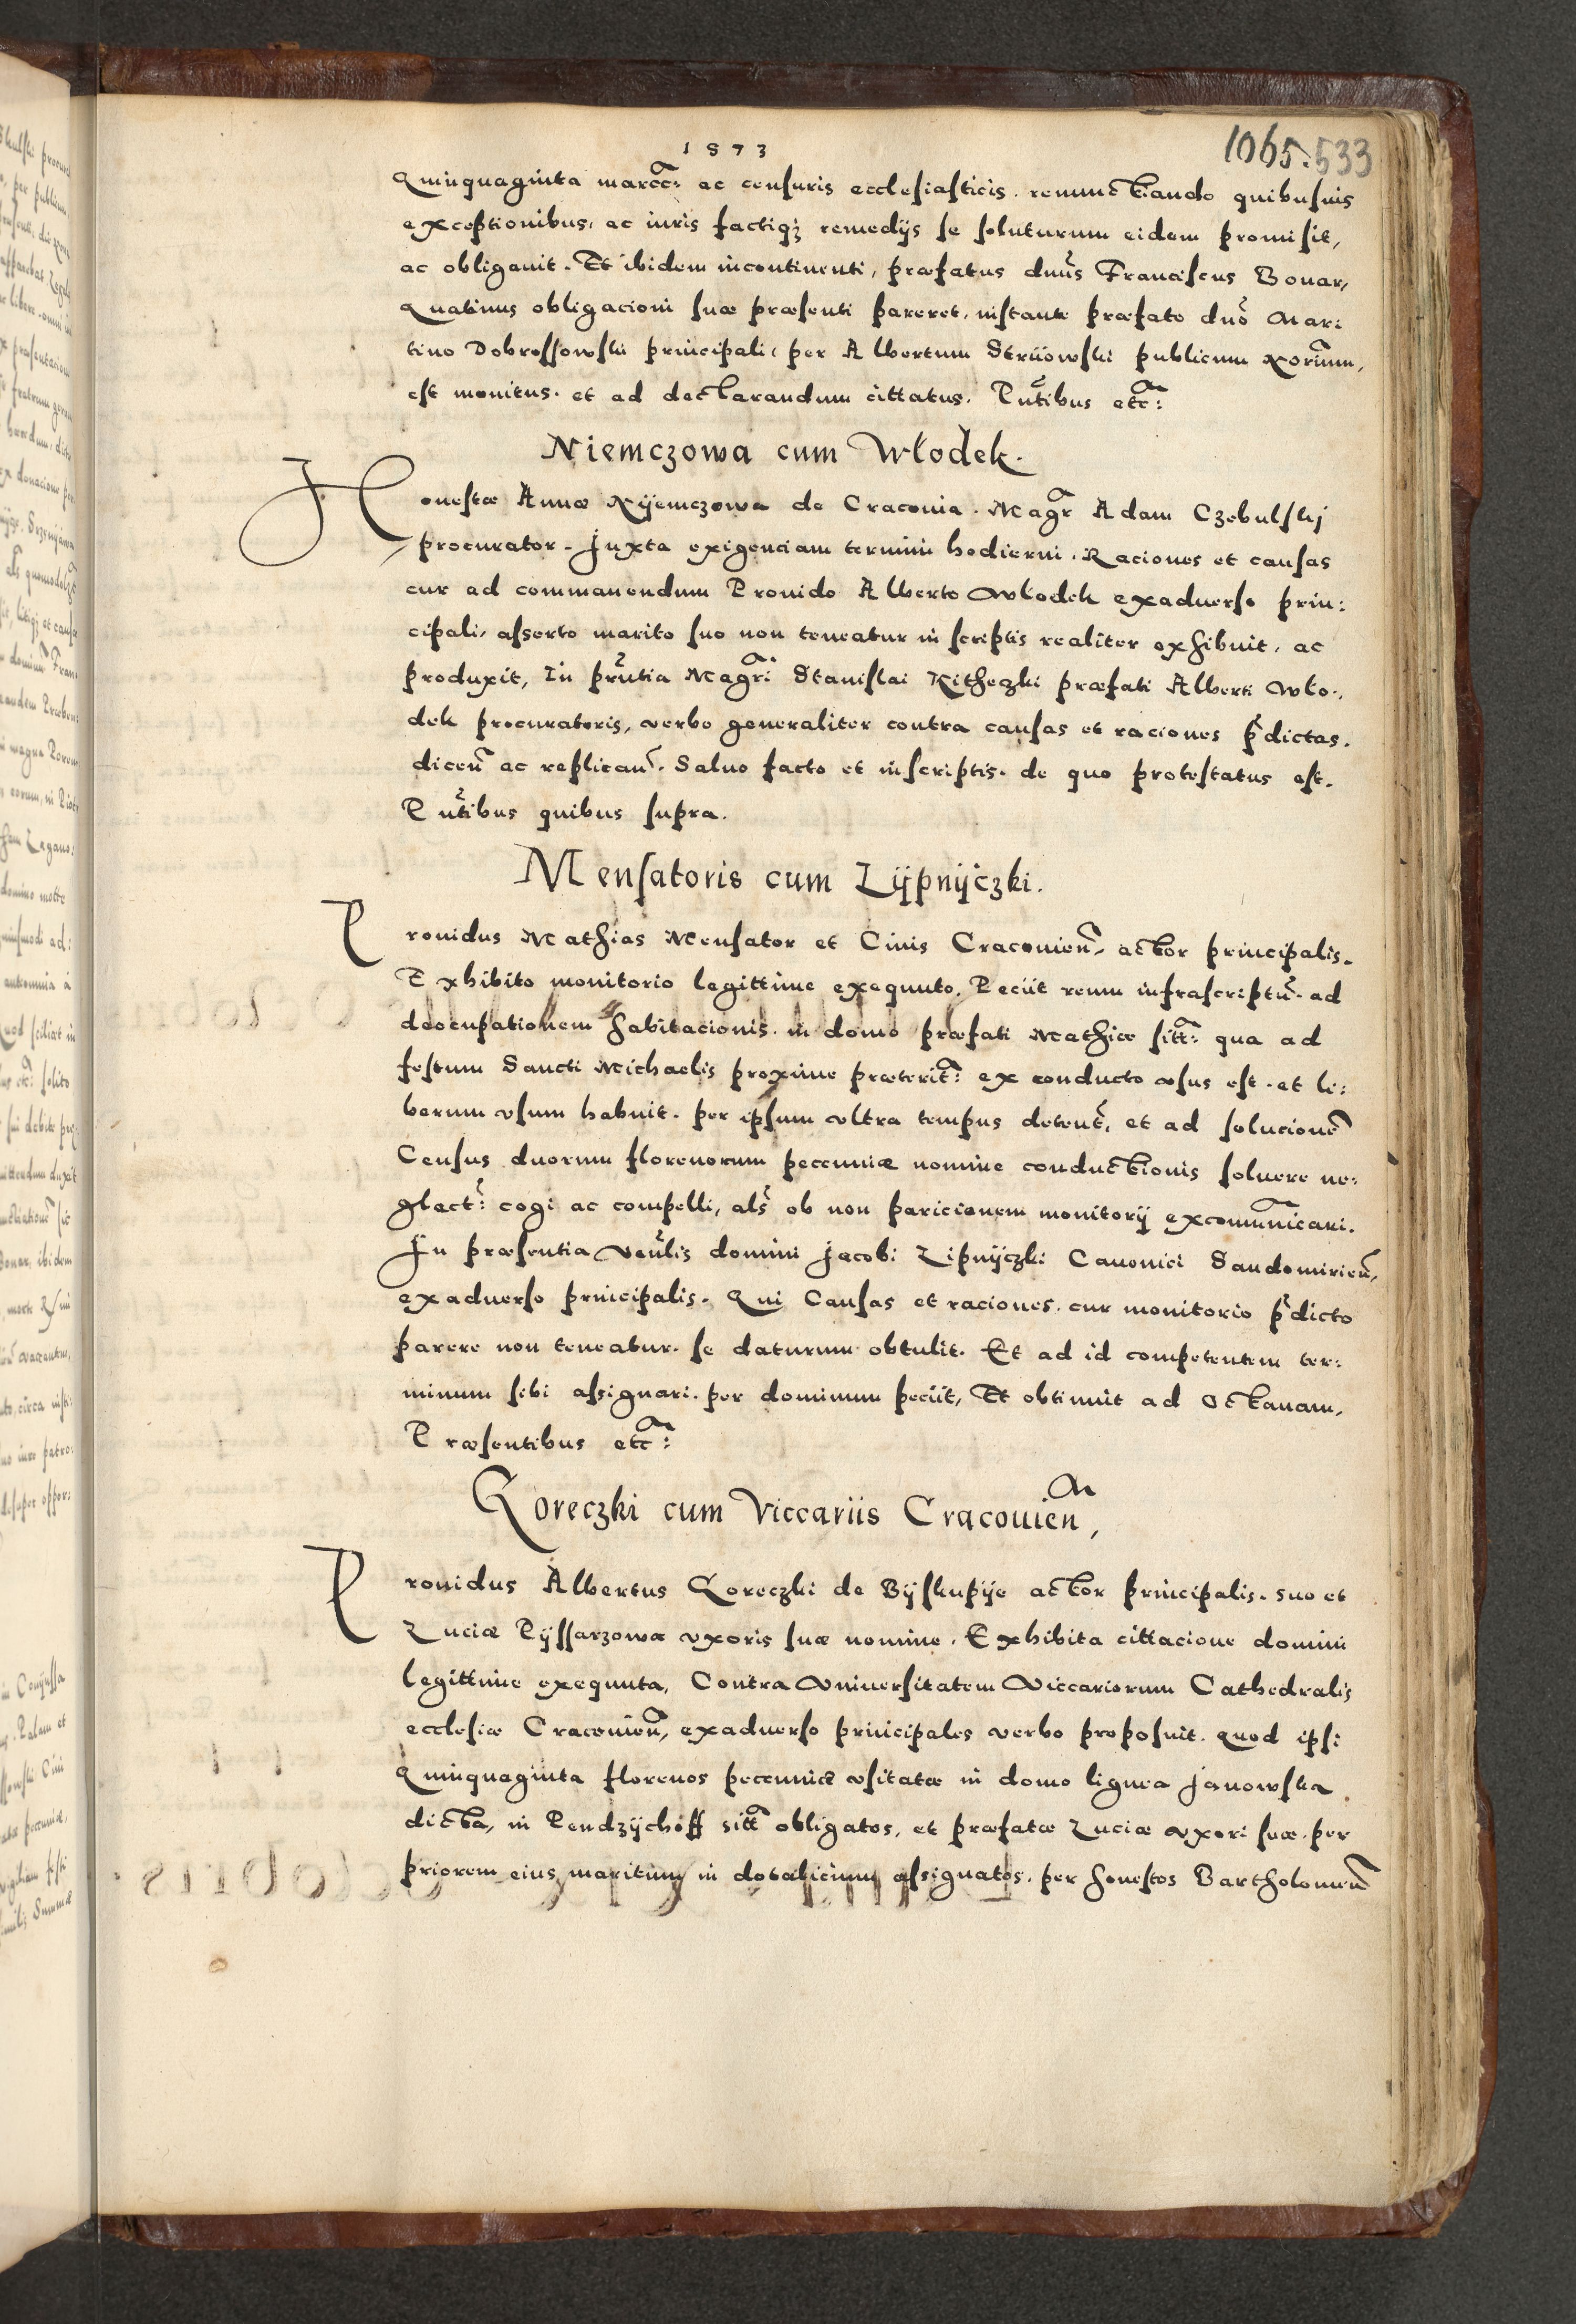 1573
1065. 533
Quinquaginta marcc: ac censuris ecclesiasticis. renunctiando quibusuis
exceptionibus, ac iuris factiqz remedijs se soluturum eidem promisit,
ac obligauit. Et ibidem incontinenti, præfatus dnus Franciscus Bonar,
Quatinus obligacioni suæ præsenti pareret, instante præfato dno Mar:
tino Dobrossowski principali, per Albertum Striiowski publicum
est monitus. et ad declarandum cittatus. Pntibus etc:
Niemczowa cum Włodek.
Honestæ Annæ Nijemczowa de Craconia. Magr Adam Czebulskj
procurator. Juxta exigenciam termini hodierni. Raciones et causas
cur ad commanendum Prouido Alberto Włodek exaduerso prin:
cipali, asserto marito suo non teneatur in scriptis realiter exhibuit, ac
produxit, In prntia Magri Stanislai Kitheczki præfati Alberti Wło.,
dek procuratoris, verbo generaliter contra causas et raciones pdictas.
dicen ac replican. Saluo facto et in scriptis. de quo protestatus est.
Pntibus quibus supra.
Mensatoris cum Lijpnijczki.
Prouidus Mathias Mensator et Ciuis Cracouien, actor principalis.
Exhibito monitorio legittime exequuto. Peciit reum infrascriptu. ad
deocupationem habitacionis. in domo præfati Mathiæ sitt: qua ad
festum Sancti Michaelis proxime præterit: ex conducto vsus est. et li:
berum vsum habuit. per ipsum vltra tempus detent, et ad solucione
Census duorum florenorum peccuniæ nomine conductionis soluere ne:
glect: cogi ac compelli, als ob non paricionem monitorij excommunicari.
In præsentia Venlis domini Jacobi Lipnijczki Canonici Sandomirien,
exaduerso principalis. Qui Causas et raciones. cur monitorio pdicto
parere non teneatur. se daturum obtulit. Et ad id competentem ter:
minum sibi assignari. per dominum peciit, Et obtinuit ad Octauam,
Præsentibus etc:
Goreczki cum Viccariis Cracouien,
Prouidus Albertus Goreczki de Bijskupije actor principalis. suo et
Luciæ Pijssarzowæ vxoris suæ nomine. Exhibita cittacione domini
legittime exequuta, Contra Vniuersitatem Viccariorum Cathedralis
ecclesiæ Cracouien, exaduerso principales verbo proposuit. quod ipsi
Quinquaginta florenos peccuniæ vsitatæ in domo lignea Janowska
dicta, in Pendzijchoff sitt obligatos, et præfatæ Luciæ vxori suæ. per
priorem eius maritum in dotalicium assignatos. per honestos Bartholomeu